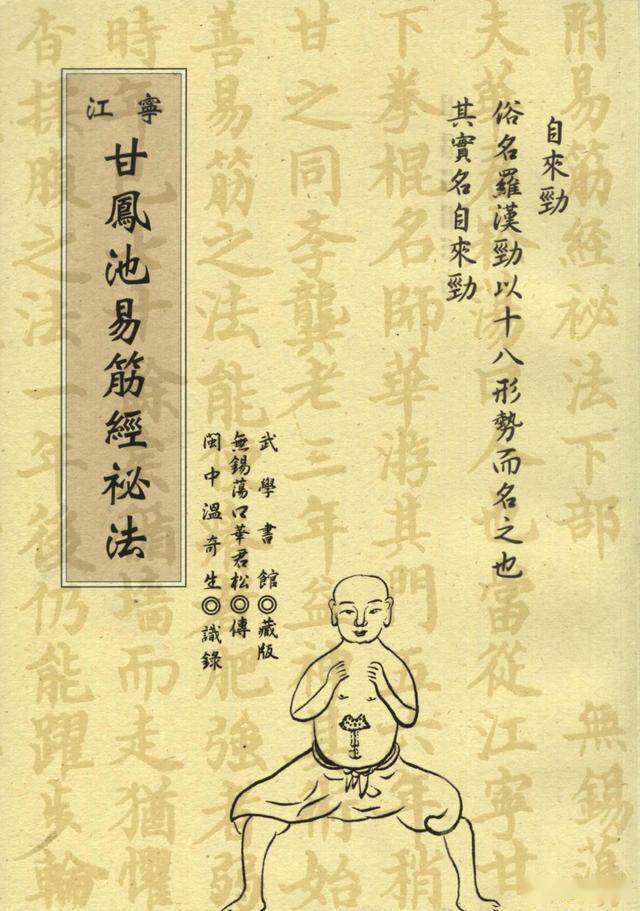 自來勁
俗名羅漢勁以十八形勢而名之也
其實名自來勁
武學書館◎藏版
無錫蕩口華君松◎傳
閩中溫奇生◎識錄
江寧
甘鳳池易筋經祕法
附易筋經祕法下部 無錫蕩
夫華 蕩口 也當從江寧甘
下拳棍名師華游其門五六年稍
甘之同李龔老三年益 而始
善易筋之法能 肥強者弱
時年 十餘 墻而走猶懼
揉腹之法一年後仍能躍步輪